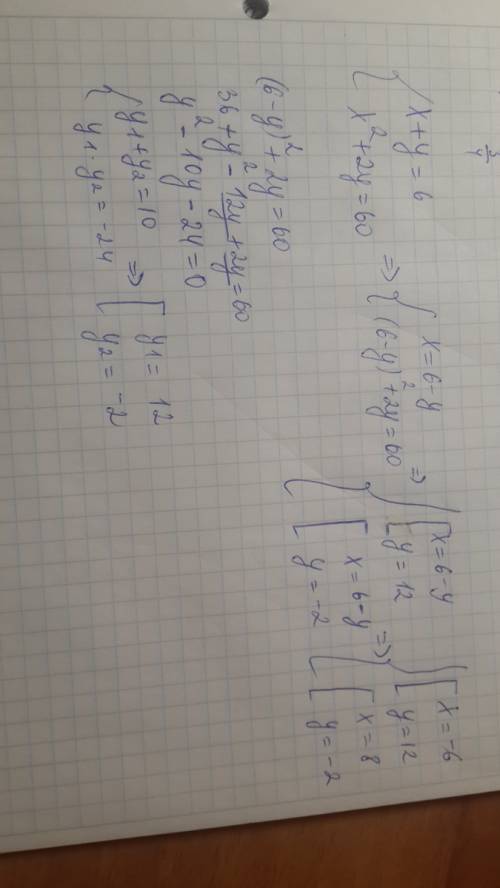 { x+y=6
x²+2y=60
=> { x=6-y
(6-y)²+2y=60
=> { [ x=6-y
y=12
[ x=6-y
y=-2
=> { [ x=-6
y=12
[ x=8
y=-2
(6-y)²+2y=60
36+y²-12y+2y=60
y²-10y-24=0
{ y₁+y₂=10
y₁·y₂=-24
=> [ y₁=12
y₂=-2